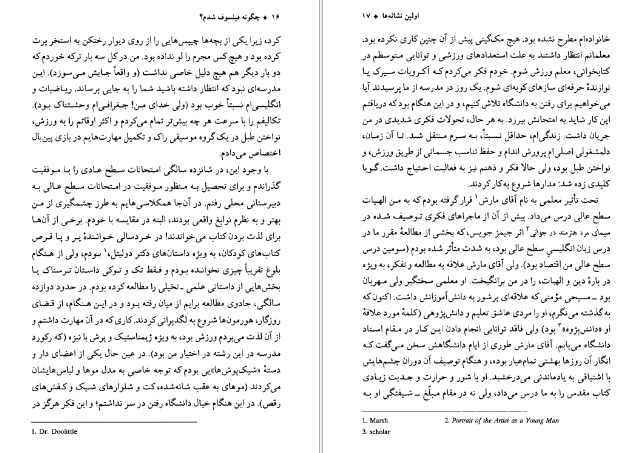 ۱۶ ◆ چگونه فیلسوف شدم؟
کرد، زیرا یکی از بچه‌ها چیپس‌هایی را از روی دیوار رختکن به استخر پرت
کرده بود و هیچ کس مجرم را لو نداده بود. من در کل سه بار ترکه خوردم که
دو بار دیگر هم هیچ دلیل خاصی نداشت (و واقعاً جایش می‌سوزد). این
مدرسه‌ای نبود که انتظار داشته باشید شما را به جایی برساند. ریاضیات و
انگلیسی‌ام نسبتاً خوب بود (ولی خدای من! جغرافی‌ام وحشتناک بود).
تکالیفم را با سرعت هر چه بیش‌تر تمام می‌کردم و اکثر اوقاتم را به ورزش،
نواختن طبل در یک گروه موسیقی راک و تکمیل مهارت‌هایم در بازی پین‌بال
اختصاص می‌دادم.
با وجود این، در شانزده سالگی امتحانات سطح عادی را با موفقیت
گذراندم و برای تحصیل به منظور موفقیت در امتحانات سطح عالی به
دبیرستانی محلی رفتم. در آن‌جا همکلاسی‌هایم به طرز چشمگیری از من
بهتر و به نظرم نوابغ واقعی بودند، البته در مقایسه با خودم. برخی از آن‌ها
برای لذت بردن کتاب می‌خواندند! در خردسالی خواننده‌ٔ پر و پا قرص
کتاب‌های کودکان، به ویژه داستان‌های دکتر دولیتل،۱ بودم، ولی از هنگام
بلوغ تقریباً چیزی نخوانده بودم و فقط تک و توکی داستان ترسناک یا
بخش‌هایی از داستانی علمی ـ تخیلی را مطالعه کرده بودم. در حدود دوازده
سالگی، جادوی مطالعه برایم از میان رفته بود و در این هنگام، از قضای
روزگار، هورمون‌ها شروع به لگدپرانی کردند. کاری که در آن مهارت داشتم و
از آن لذت می‌بردم ورزش بود، به ویژه ژیمناستیک و پرش با نیزه (که رکورد
مدرسه در این رشته در اختیار من بود). در عین حال یکی از اعضای دار و
دستهٔ «شیک‌پوش‌ها»یی بودم که توجه خاصی به مدل موها و لباس‌هایشان
می‌کردند (موهای به عقب شانه‌شده، کت و شلوارهای شیک و کفش‌های
رقص). در این هنگام خیال دانشگاه رفتن در سر نداشتم؛ و این فکر هرگز در
1. Dr. Doolittle
اولین نشانه‌ها ◆ ۱۷
خانواده‌ام مطرح نشده بود. هیچ مک‌گینی پیش از آن چنین کاری نکرده بود.
معلمانم انتظار داشتند به علت استعدادهای ورزشی و توانایی متوسطم در
کتابخوانی، معلم ورزش شوم. خودم فکر می‌کردم که آکروبات سیرک یا
نوازندهٔ حرفه‌ای سازهای کوبه‌ای شوم. یک روز در مدرسه از ما پرسیدند آیا
می‌خواهیم برای رفتن به دانشگاه تلاش کنیم، و در این هنگام بود که دریافتم
این کار شاید به امتحانش بیرزد. به هر حال، تحولات فکری شدیدی در من
جریان داشت. زندگی‌ام، حداقل نسبتاً، به سرم منتقل شد. تا آن زمان،
دلمشغولی اصلی‌ام پرورش اندام و حفظ تناسب جسمانی از طریق ورزش، و
نواختن طبل بود، ولی حالا فکر و ذهنم نیز به فعالیت احتیاج داشت. گویا
کلیدی زده شد: مدارها شروع به کار کردند.
تحت تأثیر معلمی به نام آقای مارش۱ قرار گرفته بودم که به من الهیات
سطح عالی درس می‌داد. پیش از آن از ماجراهای فکری توصیف شده در
سیمای مرد هنرمند در جوانی۲ اثر جیمز جویس، که بخشی از مطالعهٔ مقرر ما در
درس زبان انگلیسی سطح عالی بود، به شدت متأثر شده بودم (سومین درس
سطح عالی من اقتصاد بود). ولی آقای مارش علاقه به مطالعه و تفکر، به ویژه
در بارهٔ دین و الهیات، را در من برانگیخت. او معلمی سختگیر ولی مهربان
بود ــ مسیحی مؤمنی که علاقه‌ای پرشور به دانش‌آموزانش داشت. اکنون که
به گذشته می‌نگرم، او را مردی عاشق تعلیم و دانش‌پژوهی (کلمهٔ مورد علاقهٔ
او «دانش‌پژوه»۳ بود) ولی فاقد توانایی انجام دادن این کار در مقام استاد
دانشگاه می‌یابم. آقای مارش طوری از ایام دانشگاهش سخن می‌گفت که
انگار آن روزها بهشتی تمام‌عیار بود، و هنگام توصیف آن دوران چشم‌هایش
با اشتیاقی به یادماندنی می‌درخشید. او با شور و حرارت و جدیت زیادی
کتاب مقدس را به ما درس می‌داد، ولی نه در مقام مبلّغ ــ شیفتگی او به
1. Marsh 2. Portrait of the Artist as a Young Man
3. scholar